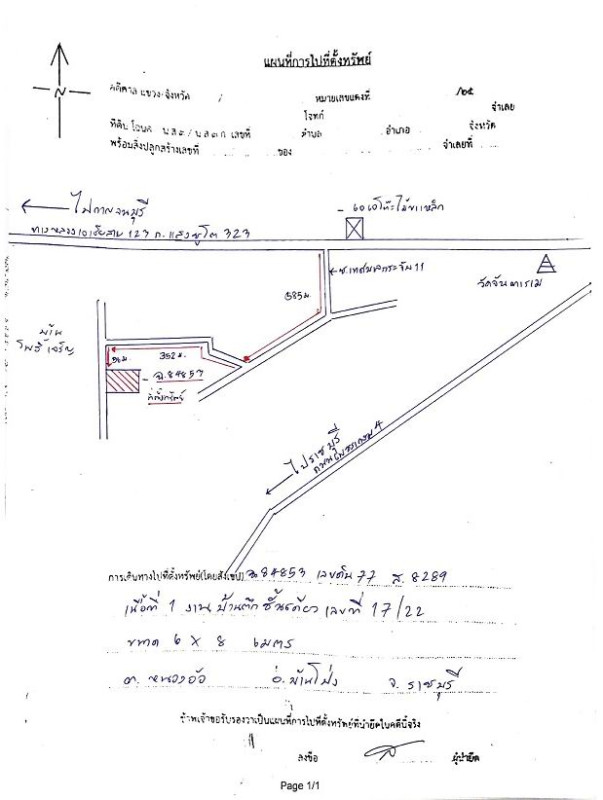 แผนที่การไปที่ตั้งทรัพย์
N
คดีศาล แขวง-จังหวัด / หมายเลขแดงที่ /๒๕
โจทก์ จำเลย
ที่ดิน โฉนด น.ส.๓ / น.ส.๓ ก. เลขที่ ตำบล อำเภอ จังหวัด
พร้อมสิ่งปลูกสร้างเลขที่ ของ จำเลยที่
ไปกาญจนบุรี
- เอเอโต๊ะไม้ขาเหล็ก
ทางหลวงเอเชียสาย 123 ถ.แสงชูโต 323
ซ.เทศบาลกระจับ 11
วัดจันทาราม
585 ม.
บ้าน
โพธิ์เจริญ
352 ม.
- ฉ.84853
ที่ตั้งทรัพย์
ไปราชบุรี
ถนนเพชรเกษม 4
การเดินทางไปที่ตั้งทรัพย์(โดยสังเขป) ฉ 84853 เลขดิน 77 ส. 8289
เนื้อที่ 1 งาน บ้านตึกชั้นเดียว เลขที่ 17/22
ขนาด 6 X 8 เมตร
ต. หนองอ้อ อ. บ้านโป่ง จ. ราชบุรี
ข้าพเจ้าขอรับรองว่าเป็นแผนที่การไปที่ตั้งทรัพย์ที่นำยึดในคดีนี้จริง
ลงชื่อ ผู้นำยึด
Page 1/1